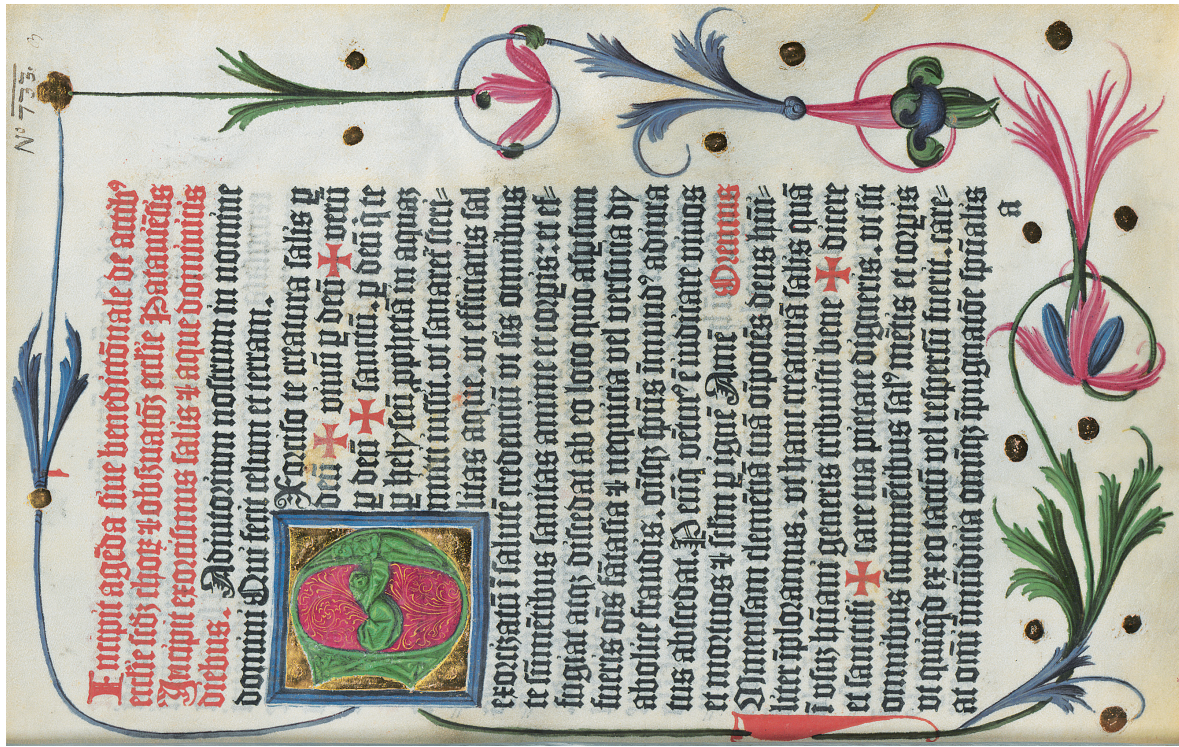 N° 733.
Incipit agēda siue benedictōnale de actibꝰ
eccl'ie scd'ꝫ chorꝝ ⁊ obẜuatōꝫ eccl'ie Patauiēsis
Incipit exorcismus salis ⁊ aque dominicis
diebus. Adiutorium nostrum in nomine
domini Qui fecit celum et terram.
Exorciso te creatura salis ꝑ
deū ✠ viuū ꝑ deū ✠ verū
ꝑ deū ✠ sanctū. ꝑ deū qͥ te
ꝑ helyseū ꝓphetā in aquaꝫ
mitti iussit. vt sanaret᷑ steri⸗
litas aque. vt efficiaris sal
exorzizatū ī salutē credentiū. vt sis omnibus
te sumētibus sanitas anime et corporis: et ef⸗
fugiat atqꝫ discedat ab eo loco quo aspersum
fueris oīs fātasia ⁊ nequicia vel versutia dy
abolice fraudis. oīsqꝫ spūs īmūdꝰ adiura
tus abscedat Per eūq vēturꝰ ē iudicare viuos
et mortuos ⁊ sclm ꝑ ignē Amē Oremus
Immensam clemētiā tuā oīpotēs deus hūi⸗
liter īploramus. vt hanc creaturā salis quā
ī vsuꝫ hūani generis tribuisti bene ✠ dicere
et sancti ✠ ficare tua pietate digneris. vt sit
omnibus sumētibus salꝰ mētis et corporis
vt quicqd ex eo tactū vel respersū fuerit. care⸗
at omī īmūdicia omniqꝫ īpugnatōe spūalis
a